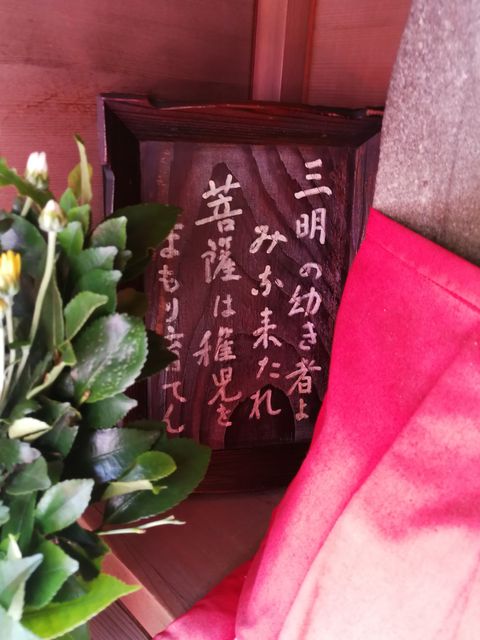 三明の幼き者よ
みな来たれ
菩薩は稚児を
まもり育てん